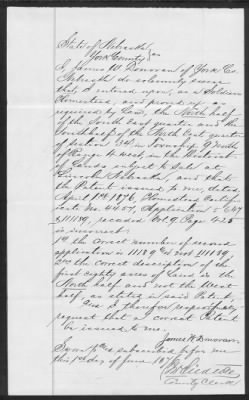 State of Nebraska
York County } ss
I James W. Donovan of York Co.
Nebraska do solemnly swear
that I entered upon, as a Soldiers
Homestead, and proved up as
required by Law, the North half
of the South East quarter and the
South half of the North East quarter
of Section 34 in Township 9 North
of Range 4 West, in the District
of Lands subject to sale at
Lincoln Nebraska, and that
the Patent issued to me, dated
April 1st 1876, Homestead Certifi-
cate No. 4457, Application
&11189, recorded Vol 9 Page 425
is incorrect
1st the correct number of second
application is 11189 & not 111189
2nd the correct description of the
first eighty acres of Land is the
North half and not the West
half, as stated in said Patent.
and I therefore respectfully
request that a correct Patent
be issued to me.
James W. Donovan
Sworn to & subscribed before me
this 1st day of June 1876
County Clerk